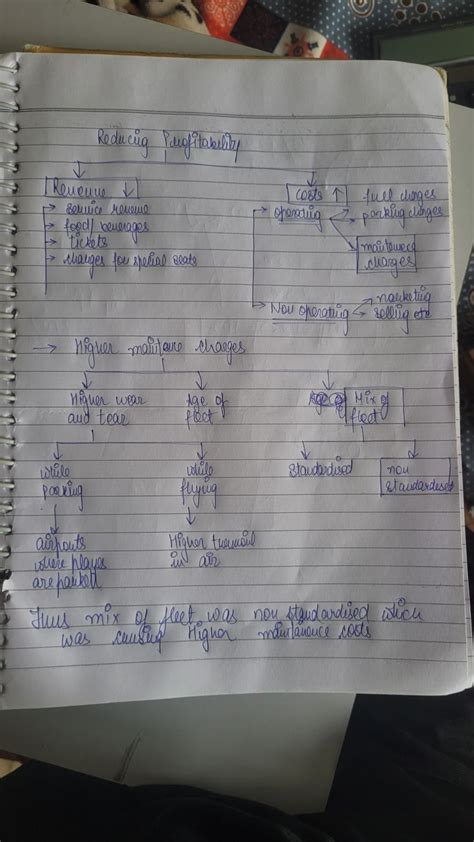 Reducing Profitability
Revenue ↓
→ service revenue
→ food/ beverages
→ tickets
→ charges for special seats
Costs ↑
→ operating
fuel charges
parking charges
charges
→ Non operating
marketing
selling etc
→ Higher charges
Higher wear
and tear
Age of
fleet
Mix of
fleet
while
parking
while
flying
Standardised
non
standardised
airports
where planes
are parked
Higher
in air
Thus mix of fleet was non standardised which
was causing Higher maintainance costs